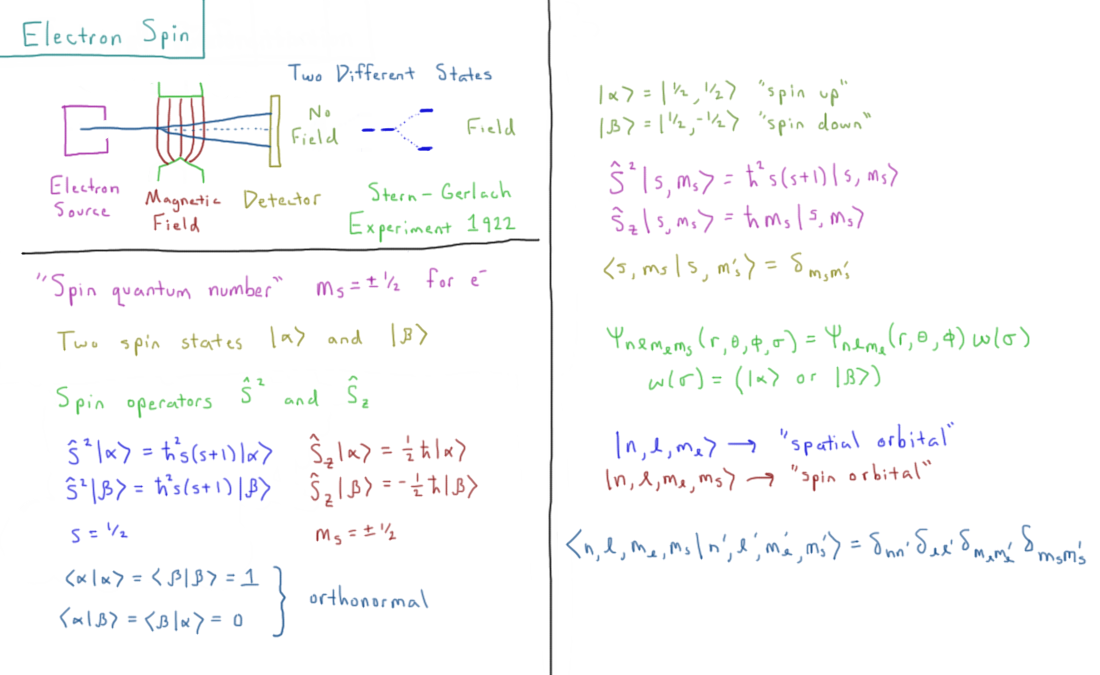 Electron Spin
Two Different States
No Field
Field
Electron Source
Magnetic Field
Detector
Stern-Gerlach
Experiment 1922
"Spin quantum number" mₛ = ± ½ for e⁻
Two spin states |α⟩ and |β⟩
Spin operators Ŝ² and Ŝ_z
Ŝ²|α⟩ = ħ²s(s+1)|α⟩ Ŝ_z|α⟩ = ½ħ|α⟩
Ŝ²|β⟩ = ħ²s(s+1)|β⟩ Ŝ_z|β⟩ = -½ħ|β⟩
s = ½ mₛ = ± ½
⟨α|α⟩ = ⟨β|β⟩ = 1
⟨α|β⟩ = ⟨β|α⟩ = 0
} orthonormal
|α⟩ = |½, ½⟩ "spin up"
|β⟩ = |½, -½⟩ "spin down"
Ŝ²|s, mₛ⟩ = ħ²s(s+1)|s, mₛ⟩
Ŝ_z|s, mₛ⟩ = ħmₛ|s, mₛ⟩
⟨s, mₛ|s, mₛ'⟩ = δ_{mₛmₛ'}
Ψ_{nℓm_ℓmₛ}(r, θ, ϕ, σ) = Ψ_{nℓm_ℓ}(r, θ, ϕ) ω(σ)
ω(σ) = (|α⟩ or |β⟩)
|n, ℓ, m_ℓ⟩ → "spatial orbital"
|n, ℓ, m_ℓ, mₛ⟩ → "spin orbital"
⟨n, ℓ, m_ℓ, mₛ|n', ℓ', m_ℓ', mₛ'⟩ = δ_{nn'} δ_{ℓℓ'} δ_{m_ℓm_ℓ'} δ_{mₛmₛ'}